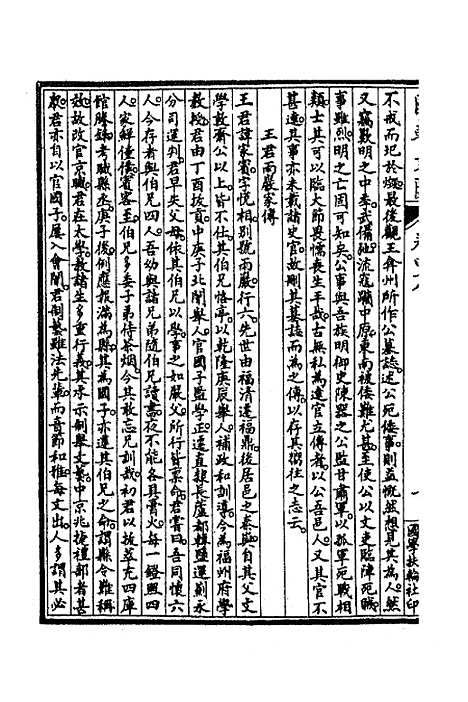 不戒而圯於燬最後觀王弇州所作公墓誌述公死倭事則益慨然想見其為人然
又竊歎明之中季武備弛流寇躪中原東南被倭難尤甚至使公以文吏臨陣死賊
事雖烈明之亡固可知矣公事與吾族明御史陳器之公監甘肅軍以孤軍死戰相
類士其可以臨大節畏懦喪生乎哉古無私為達官立傳者以公吾邑人又其官不
甚達其事亦未載諸史官故刪其墓誌而為之傳以存其嚮往之志云
王君雨嚴家傳
王君諱家賓字悅相別號雨嚴行六先世由福清遷福鼎後居邑之秦嶼自其父文
學敦齋公以上皆不仕其伯兄恪亭以乾隆庚辰舉人補政和訓導今為福州府學
教授君由丁酉拔貢中庚子北闈舉人官國子監學正遷直隸長蘆都轉鹽運薊永
分司運判君早失父母依其伯兄以學事之如嚴父所行皆稟命君嘗曰吾同懷六
人今存者與伯兄四人吾幼與諸兄弟隨伯兄讀書夜不能各具膏火每一鐙照四
人家鮮僮僕賓客至伯兄多委子弟侍茶烟今其敢忘兄訓哉初君以拔萃充四庫
館謄錄考職縣丞庚子後例應報滿為縣其為國子亦遵其伯兄之命謂縣令難稱
故改官京職君在太學教諸生多重行義其示制舉文藝中京兆捷禮部者甚
衆君亦自以官國子屢入會闈君制藝雖法先輩而音節和雅每文出人多謂其必
國學扶輪社印